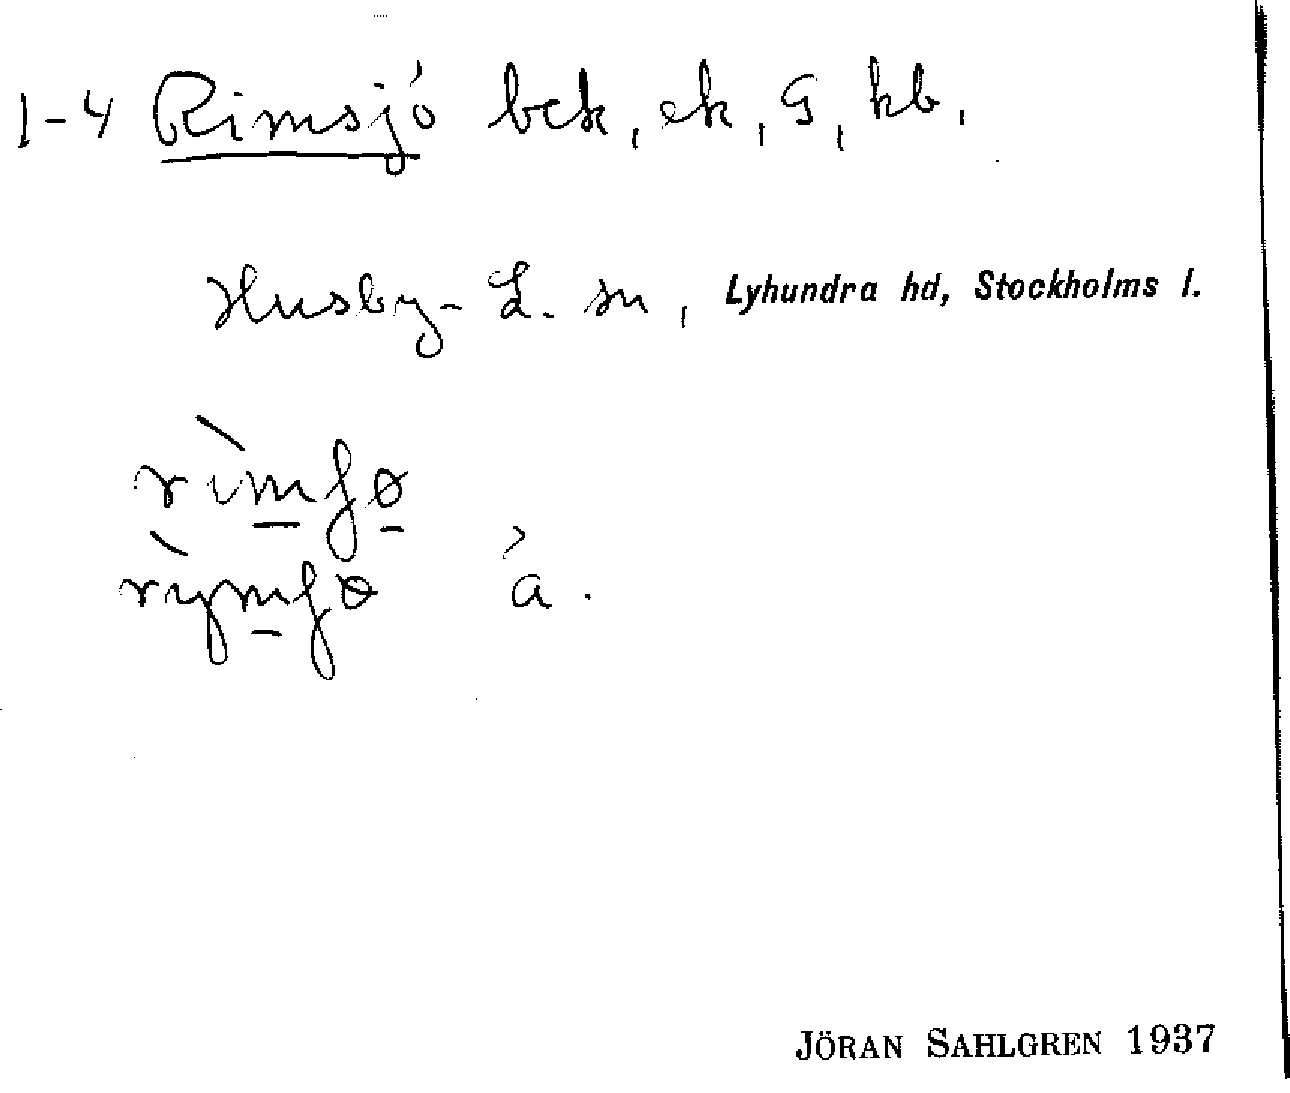 1-4 Rimsjö bck, ek, G, kb.
Husby- L. sn, Lyhundra hd, Stockholms l.
rìmʃø
rỳmʃø å.
JÖRAN SAHLGREN 1937